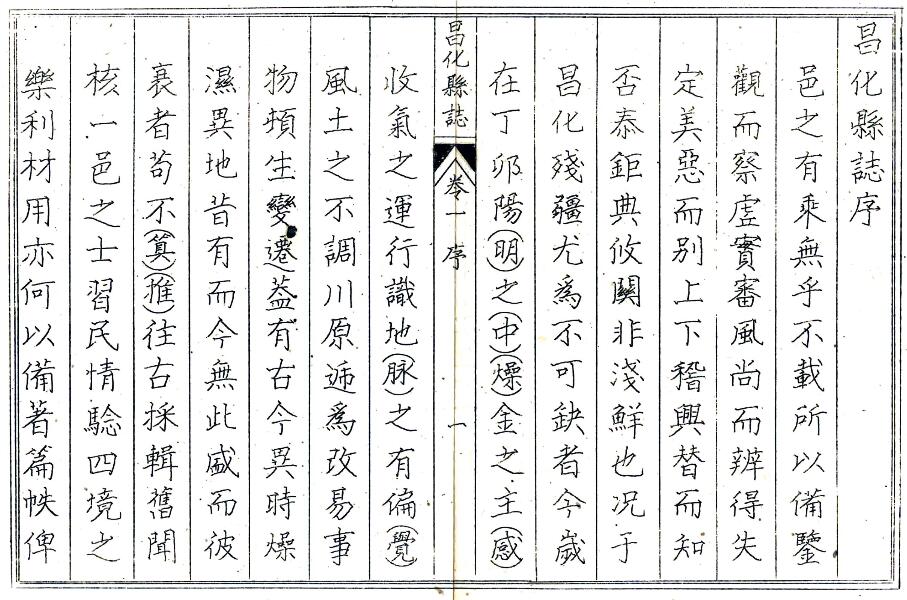 昌化縣誌序
邑之有乘無乎不載所以備鑒
觀而察虛實審風尚而辨得失
定美惡而別上下稽興替而知
否泰鉅典攸關非淺鮮也況于
昌化殘疆尤為不可缺者今歲
在丁夘陽(明)之(中)(燥)金之主(感)
昌化縣誌 卷一 序 一
收氣之運行識地(脉)之有偏(覺)
風土之不調川原遞為改易事
物頓生變遷葢有古今異時燥
濕異地昔有而今無此盛而彼
衰者苟不(算)(推)往古採輯舊聞
核一邑之士習民情驗四境之
樂利材用亦何以備著篇帙俾